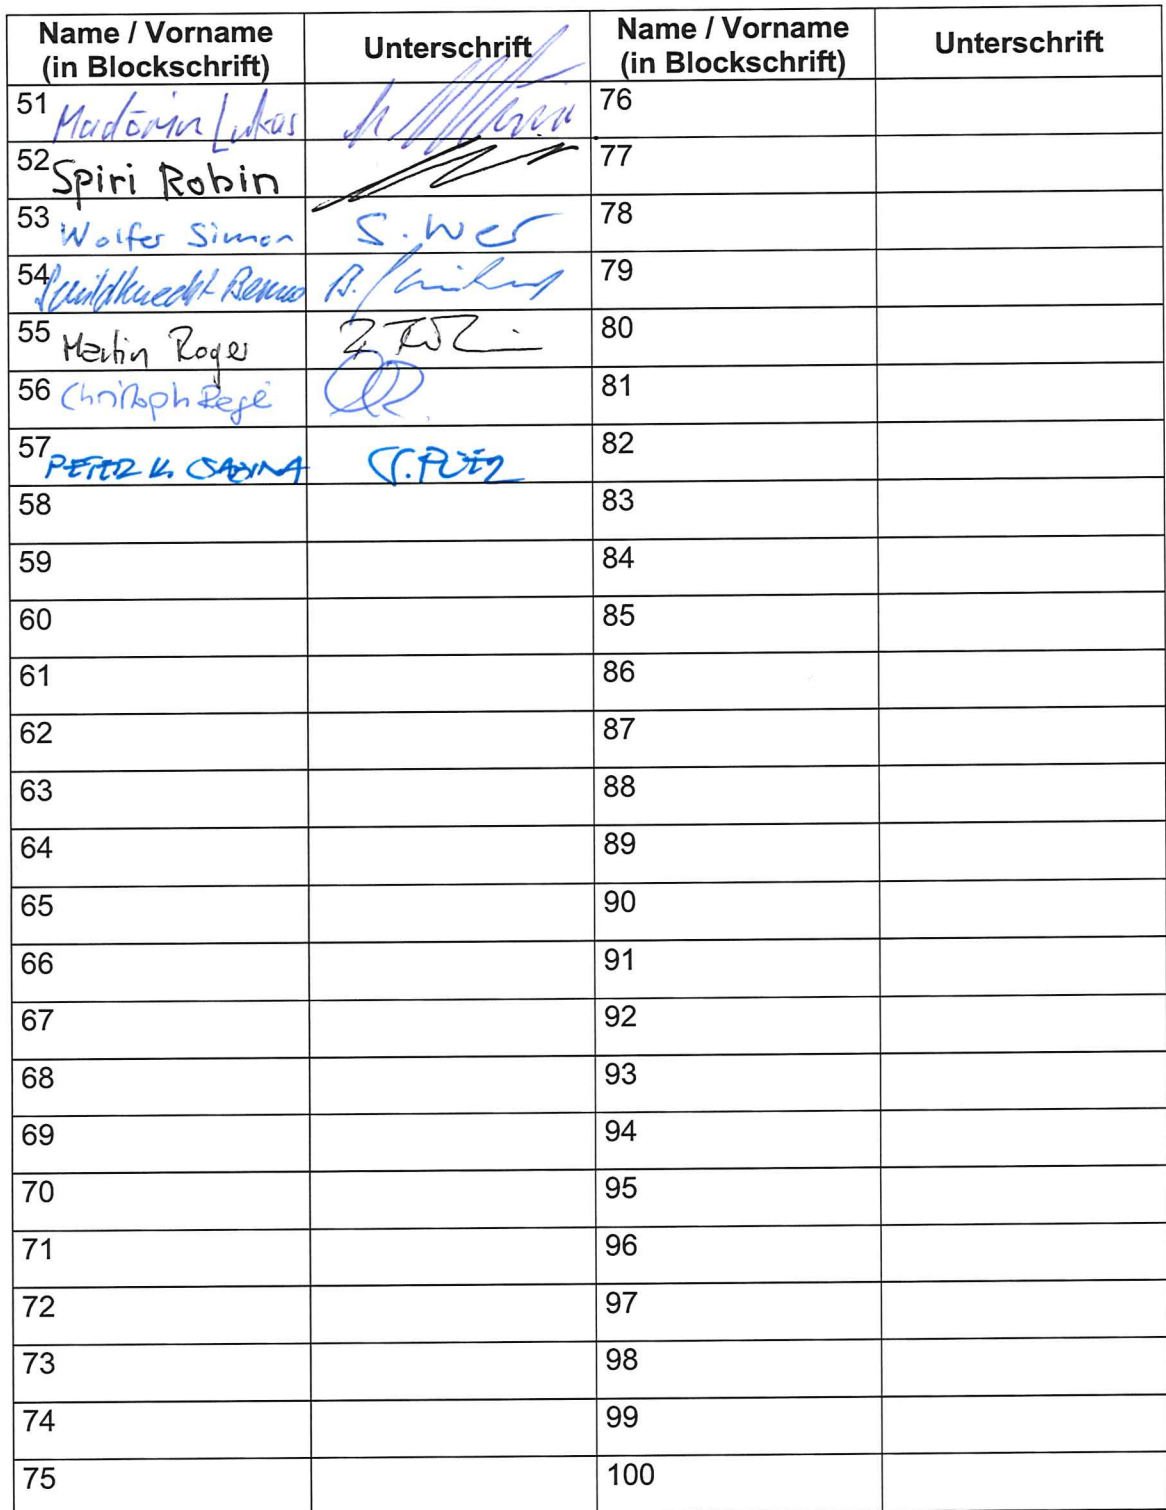 Name / Vorname (in Blockschrift) Unterschrift Name / Vorname (in Blockschrift) Unterschrift
51 Madörin Lukas 76
52 Spiri Robin 77
53 Wolfer Simon S. Wer 78
54 Schildknecht Benno B. 79
55 Martin Roger 80
56 Christoph Regé 81
57 PETER K. 82
58 83
59 84
60 85
61 86
62 87
63 88
64 89
65 90
66 91
67 92
68 93
69 94
70 95
71 96
72 97
73 98
74 99
75 100